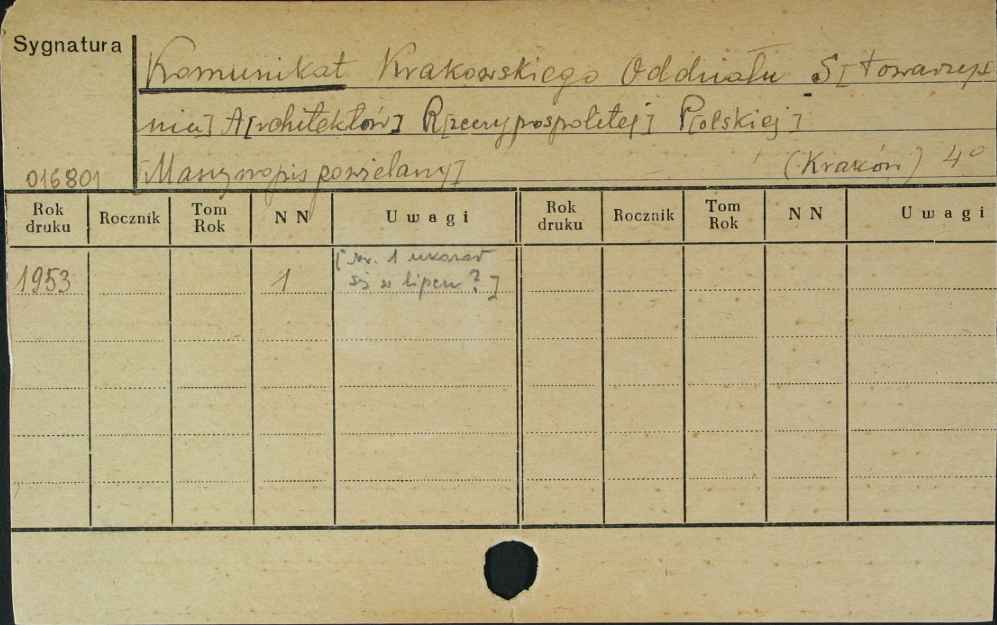 Sygnatura
Komunikat Krakowskiego Oddziału S[towarzysze
nia] A[rchitektów] R[zeczypospolitej] P[olskiej]
016801 [Maszynopis powielany] (Kraków) 4°
Rok druku Rocznik Tom Rok NN Uwagi Rok druku Rocznik Tom Rok NN Uwagi
1953 1 [Nr. 1 ukazał
się w lipcu?]